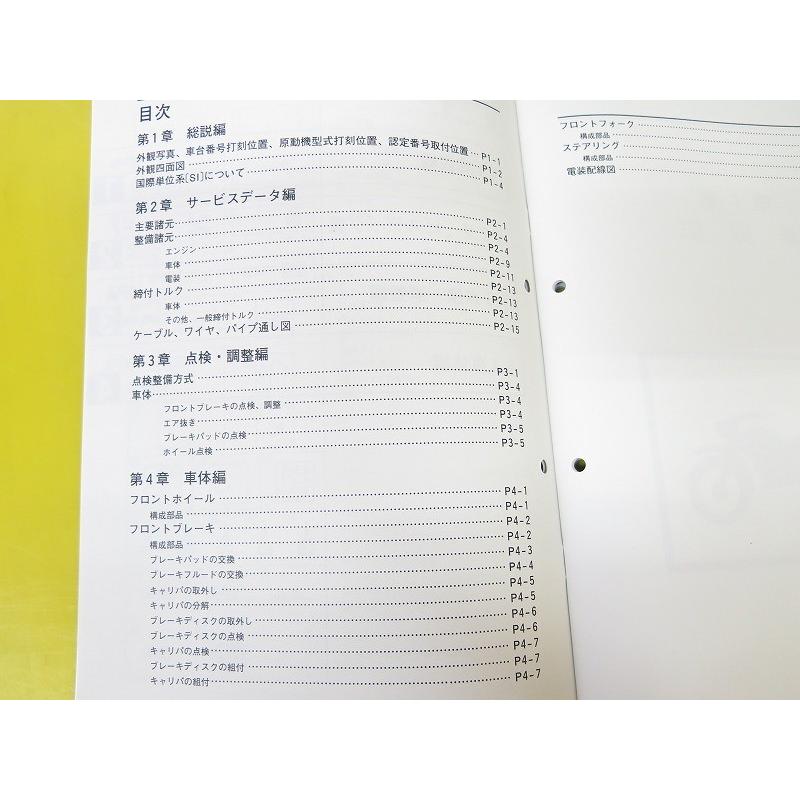 目次
第1章 総説編
外観写真、車台番号打刻位置、原動機型式打刻位置、認定番号取付位置 … P1-1
外観四面図 … P1-2
国際単位系[SI]について … P1-4
第2章 サービスデータ編
主要諸元 … P2-1
整備諸元 … P2-4
エンジン … P2-4
車体 … P2-9
電装 … P2-11
締付トルク … P2-13
車体 … P2-13
その他、一般締付トルク … P2-13
ケーブル、ワイヤ、パイプ通し図 … P2-15
第3章 点検・調整編
点検整備方式 … P3-1
車体 … P3-4
フロントブレーキの点検、調整 … P3-4
エア抜き … P3-4
ブレーキパッドの点検 … P3-5
ホイール点検 … P3-5
第4章 車体編
フロントホイール … P4-1
構成部品 … P4-1
フロントブレーキ … P4-2
構成部品 … P4-2
ブレーキパッドの交換 … P4-3
ブレーキフルードの交換 … P4-4
キャリパの取外し … P4-5
キャリパの分解 … P4-5
ブレーキディスクの取外し … P4-6
ブレーキディスクの点検 … P4-6
キャリパの点検 … P4-7
ブレーキディスクの組付 … P4-7
キャリパの組付 … P4-7
フロントフォーク …
構成部品 …
ステアリング …
構成部品 …
電装配線図 …